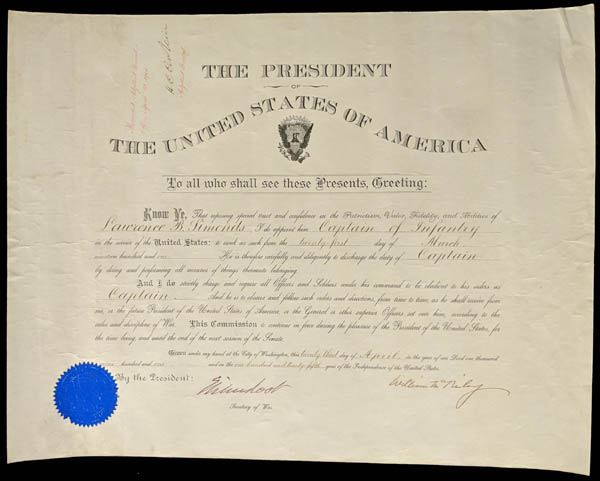 THE PRESIDENT
OF
THE UNITED STATES OF AMERICA
To all who shall see these Presents, Greeting:
Know Ye, That reposing special trust and confidence in the Patriotism, Valor, Fidelity, and Abilities of
Lawrence B. Simonds I do appoint him Captain of Infantry
in the service of the United States: to rank as such from the twenty-first day of March
nineteen hundred and one. He is therefore carefully and diligently to discharge the duty of Captain
by doing and performing all manner of things thereunto belonging.
And I do strictly charge and require all Officers and Soldiers under his command to be obedient to his orders as
Captain. And he is to observe and follow such orders and directions, from time to time, as he shall receive from
me, or the future President of the United States of America, or the General or other superior Officers set over him, according to the
rules and discipline of War. This Commission to continue in force during the pleasure of the President of the United States, for
the time being, and until the end of the next session of the Senate.
Given under my hand at the City of Washington, this twenty third day of April in the year of our Lord one thousand
nine hundred and one, and in the one hundred and twenty-fifth year of the Independence of the United States.
By the President:
William McKinley
Elihu Root
Secretary of War.